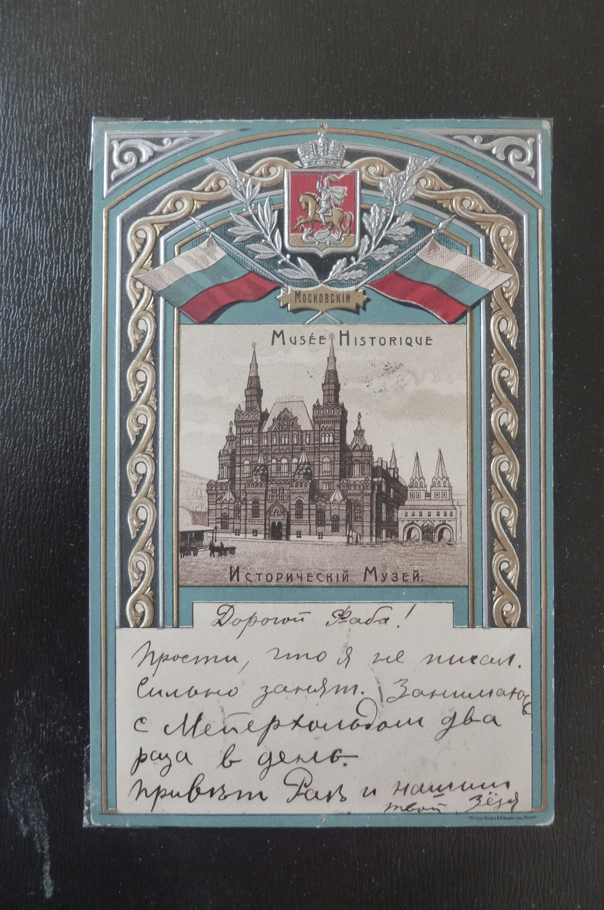 Московскій
Musée Historique
Историческій Музей.
Дорогой Фаба!
Прости, что я не писал.
Сильно занят. Занимаюсь
с Мейерхольдом два
раза в день.
Привѣт Раѣ и нашим
твой Зёзя